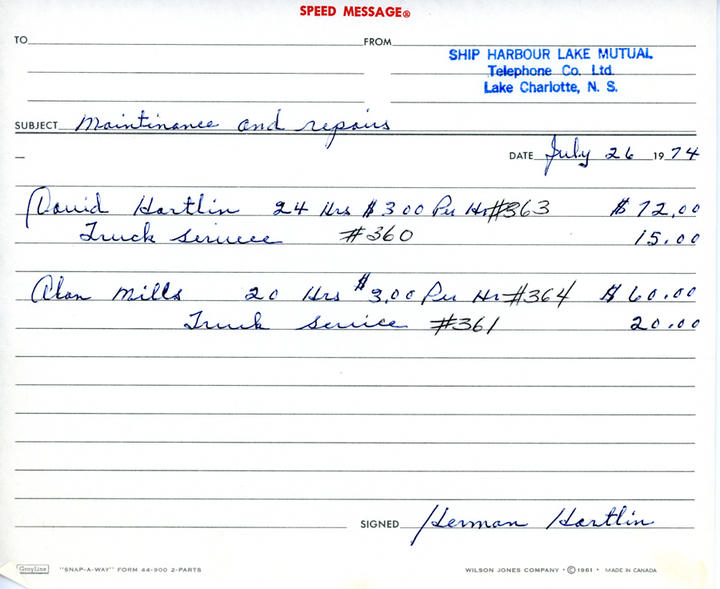 SPEED MESSAGE®
TO FROM
SHIP HARBOUR LAKE MUTUAL
Telephone Co. Ltd.
Lake Charlotte, N. S.
SUBJECT Maintinance and repairs
DATE July 26 1974
David Hartlin 24 Hrs $3.00 Per Hr #363 $72.00
Truck service #360 15.00
Alan Mills 20 Hrs $3.00 Per Hr #364 $60.00
Truck service #361 20.00
SIGNED Herman Hartlin
GrayLine "SNAP-A-WAY" FORM 44-900 2-PARTS WILSON JONES COMPANY • © 1961 • MADE IN CANADA